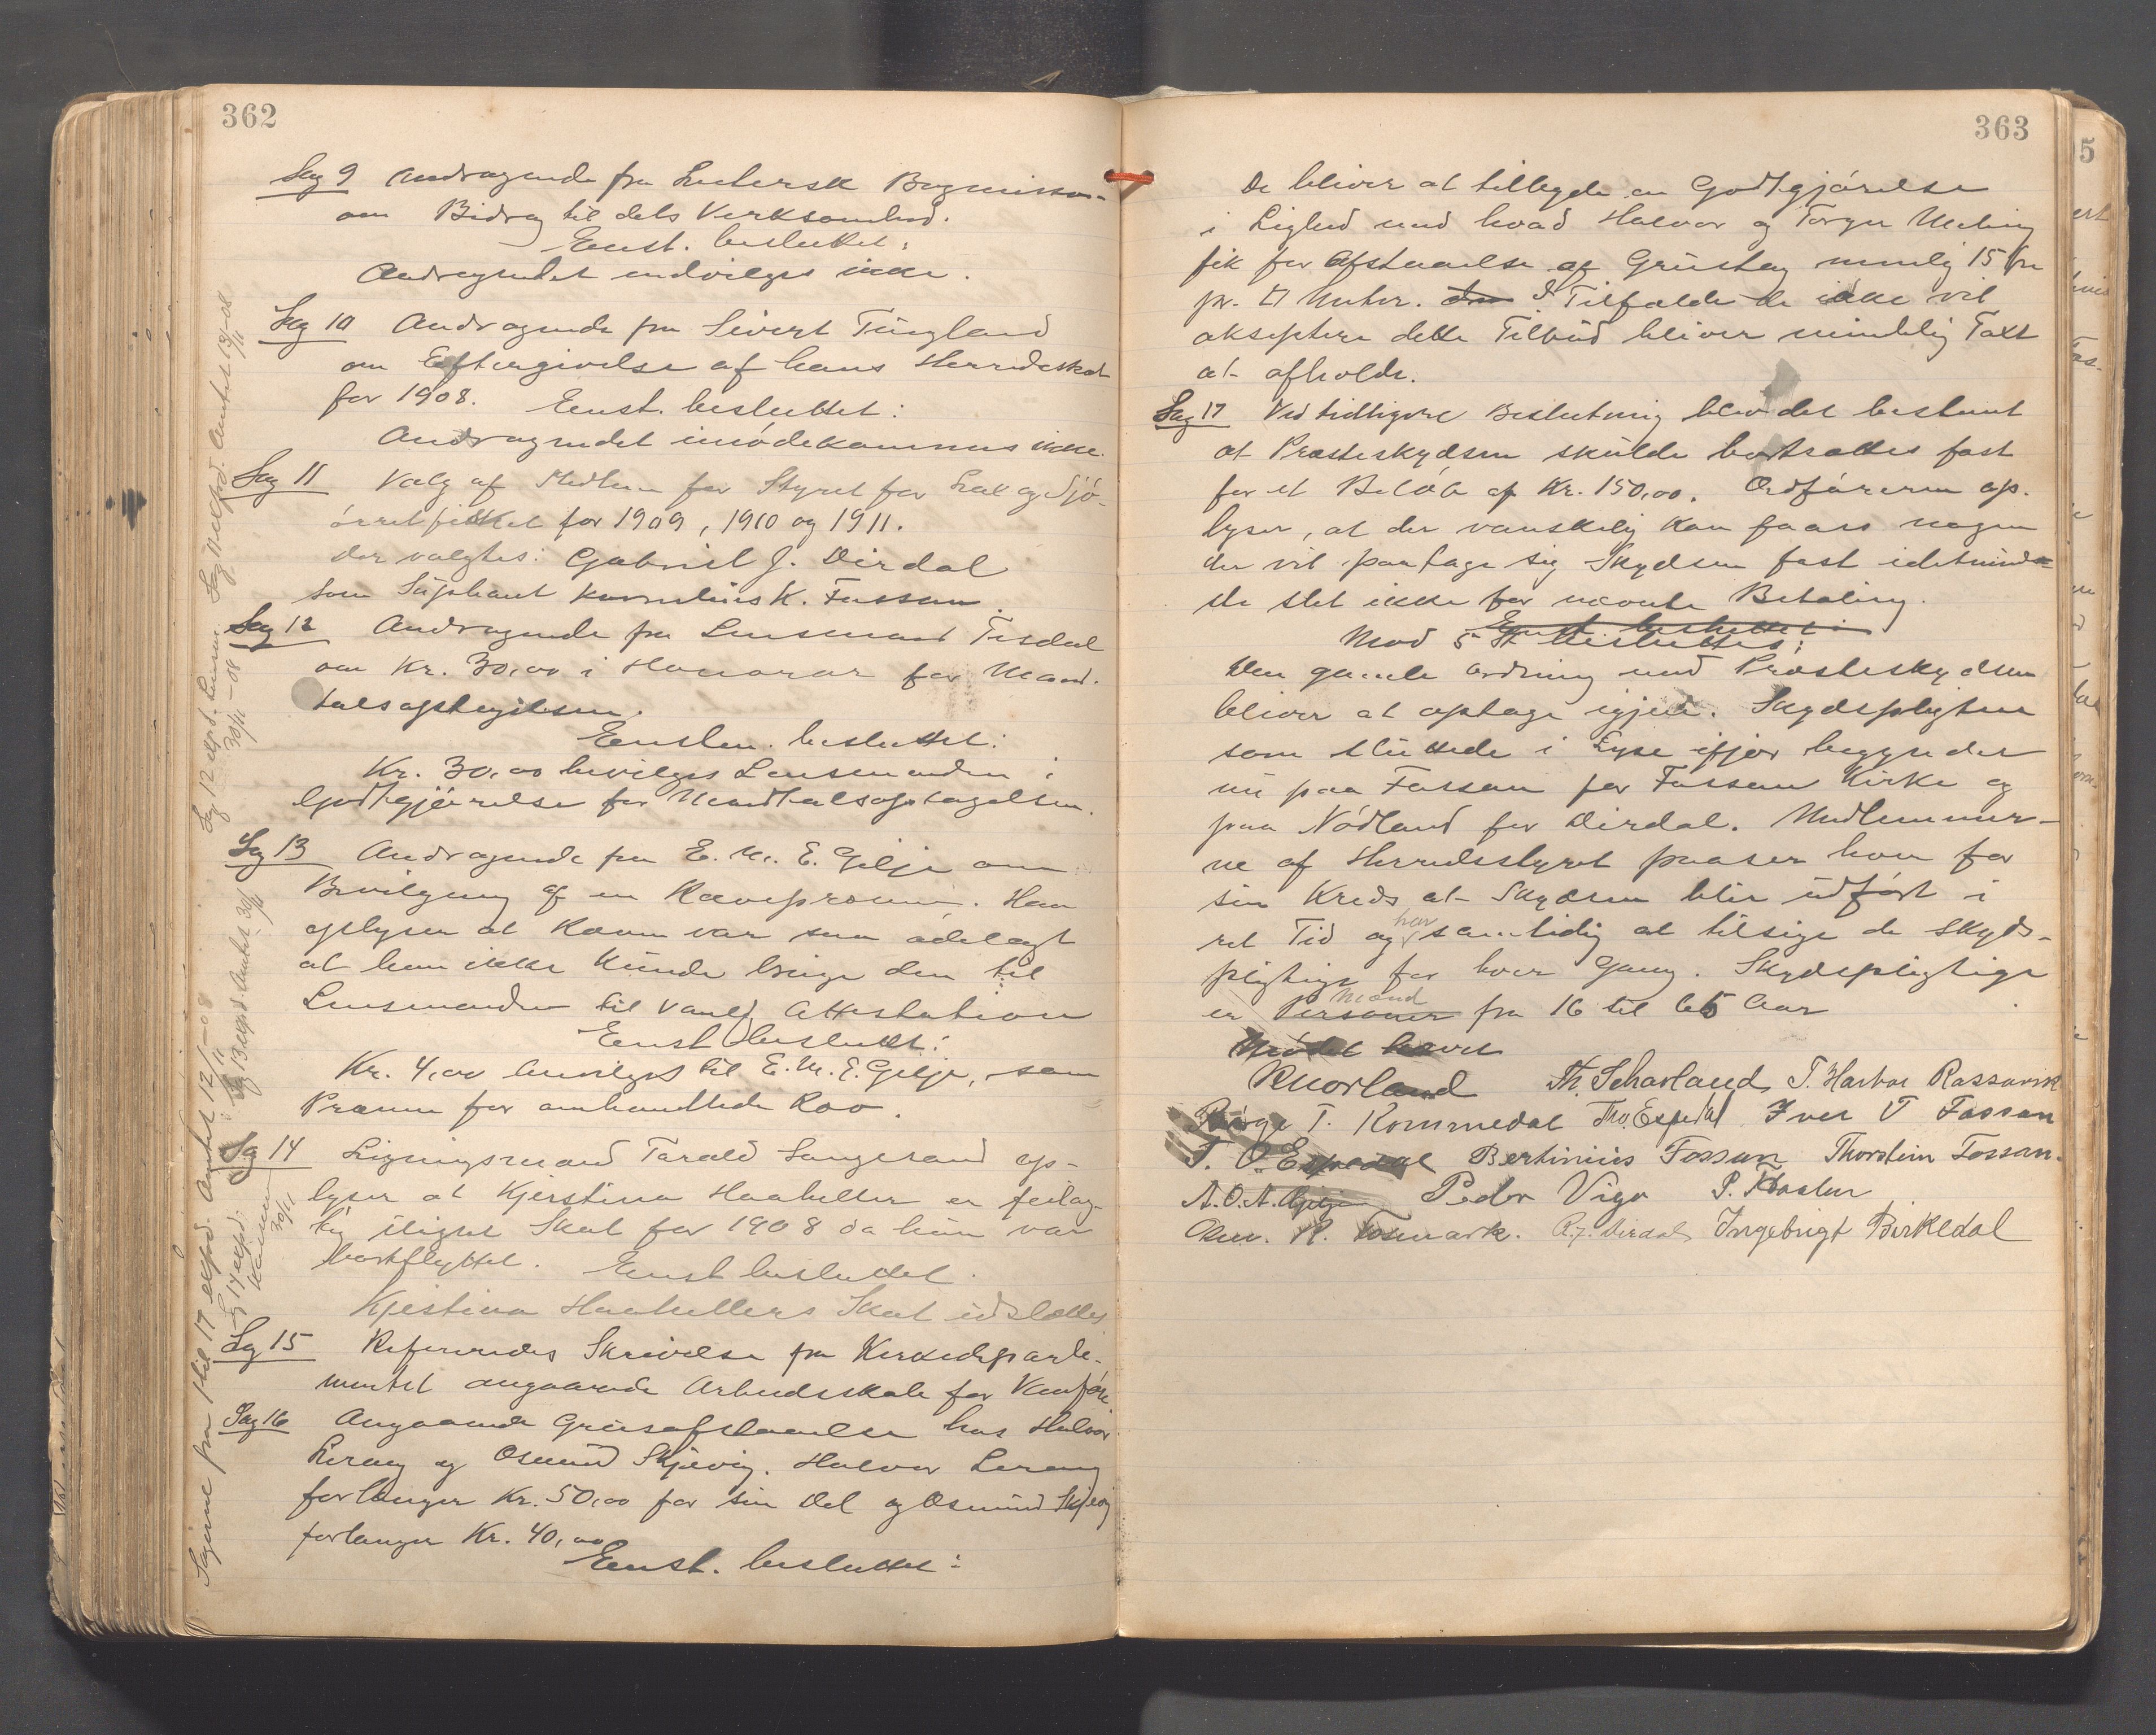 362
Sag 9 Andragende fra Lutersk Bogmission
om Bidrag til dets Virksomhed.
Enst. besluttet:
Andragendet indvilges ikke.
Sag 10 Andragende fra Sivert Tungland
om Eftergivelse af hans Herredsskat
for 1908. Enst. besluttet:
Andragendet imødekommes ikke.
Sag 11 Valg af Medlem for Styret for Lax og Sjø-
örretfisket for 1909, 1910 og 1911.
Der valgtes: Gabriel J. Dirdal
som Supleant Kornelius K. Fossan.
Sag 12 Andragende fra Lensmand Tisdal
om Kr. 30,00 i Honorar for Mand-
talsoptagelsen.
Enstem. besluttet:
Kr. 30,00 bevilges Lensmanden i
Godtgjörelse for Mandtalsoptagelsen.
Sag 13 Andragende fra E. M. E. Gilje om
Bevilgning af en Rævepræmie. Han
oplyser at Ræven var saa ödelagt
at han ikke kunde bringe den til
Lensmanden til vanlig Attestation
Enst besluttet:
Kr. 4,00 bevilges til E. M. E. Gilje, som
Præmie for omhandlede Ræv.
Sag 14 Ligningsmand Tarald Sangesand op-
lyser at Kjerstina Haaheller er feilag-
tig ilignet Skat for 1908 da hun var
bortflyttet. Enst besluttet.
Kjestina Haahellers Skat udslettes
Sag 15 Refereredes Skrivelse fra Kirkedeparte-
mentet angaaende Arbeidsskole for Vanföre
Sag 16 Angaaende Grusafstaaelse hos Halvor
Lerang og Osmund Skjævig. Halvor Lerang
forlanger Kr. 50,00 for sin Del og Osmund Skjævig
forlanger Kr. 40,00
Enst. besluttet:
Sagerne fra 1 til 17 exped. Amtet 12/11-08
Sag 12 exped. Lensm. 30/11-08
Sag 11 exped. Amtet 13/11-08
Sag 13 exped. Amtet 30/11
Sag 14 exped. Kasserer 30/11
363
De bliver at tillegde en Godtgjörelse
i Lighed med hvad Halvor og Torger Meling
fik for Afstaaelse af Grustag nemlig 15 Öre
pr. □ Meter. I Tilfælde de ikke vil
akseptere dette Tilbud bliver mindelig Taxt
at afholde.
Sag 17 Ved tidligere Beslutning blev det bestemt
at Præsteskydsen skulde bortsættes fast
for et Belöb af Kr. 150,00. Ordföreren op-
lyser, at der vanskelig kan faaes nogen
der vil paatage sig Skydsen fast idetmind-
ste slet ikke for nævnte Betaling.
Enst. besluttet:
Mod 5 St besluttes:
Den gamle Ordning med Præsteskydsen
bliver at optage igjen. Skydspligten
som sluttede i Lyse ifjor begynder
nu paa Fossan for Fossan Kirke og
paa Nödland for Dirdal. Medlemmer-
ne af Herredsstyret paaser hver for
sin Kreds at Skydsen blir udfört i
ret Tid og har samtidig at tilsige de skyds-
pligtige for hver Gang. Skydspligtige
er Personer Mænd fra 16 til 65 Aar
Mödet hævet
R Morland Th. Schavland T. Harbo Rassavik
Börge T. Kommedal Tho. Espedal Iver T Fossan
T. O. Espedal Bertinius Fossan Thorstein Fossan.
A. O. A. Gilje Peder Vigo P. Kloster
Osm. R. Fosmark. R. J. Dirdal Ingebrigt Birkedal